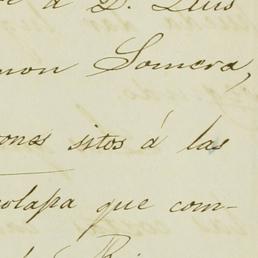 á D. Luis
mon Somera,
ones sitos á las
olapa que com-